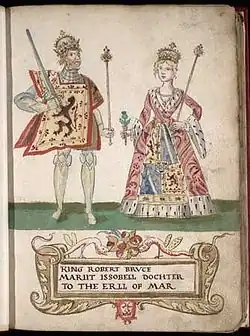 KING ROBERT BRUCE
MARIIT ISSOBELL DOCHTER
TO THE ERLL OF MAR